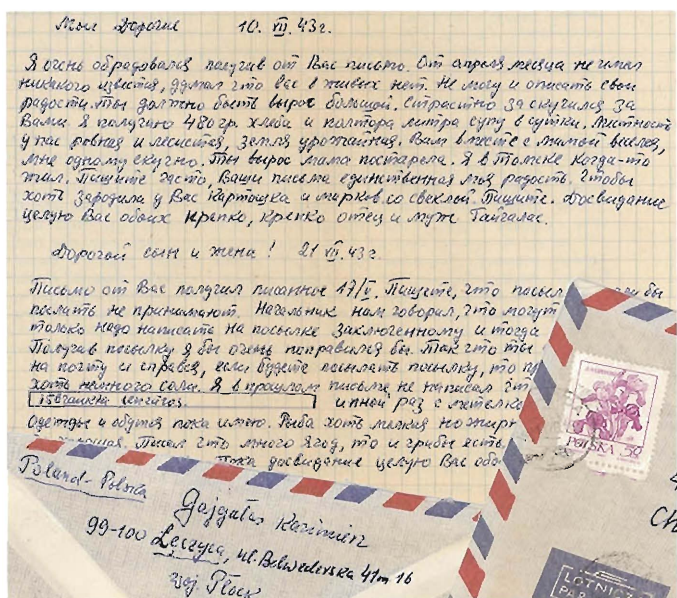 Мои Дорогие 10. VII. 43г.
Я очень обрадовался получив от Вас письмо. От апреля месяца не имел
никакого известия, думал что вас в живых нет. Не могу и описать свои
радости. Ты должно быть вырос большой. Страстно заскучился за
Вами. Я получаю 480 гр. хлеба и полтора литра супу в сутки. Местность
у нас ровная и лесистая, земля урожайная. Вам вместе с мамой веселея,
мне одному скучно. Ты вырос мама постарела. Я в Томске когда-то
жил. Пишите часто. Ваши письма единственная моя радость. Чтобы
хоть зародила у Вас картошка и морковь со свеклой. Пишите. Досвидание
целую Вас обоих крепко, крепко отец и муж Гайгалас.
Дорогой сын и жена! 21 VII. 43г.
Письмо от Вас получил писанное 17/V. Пишете, что посыл бы
послать не принимают. Начальник нам говорил, что могут
только надо написать на посылке заключенному и тогда
Получив посылку я бы очень поправился бы. Так что ты
на почту и справся, если будете посылать посылку, то
хоть немного соли. Я в прошлом письме не написал
раз с метелко
Одежды и обутся пока имею. Рыба хоть мелкая но жирн
Писал что много ягод, то и грибы есть.
Пока досвидание целую Вас обо
Poland-Polska
Gajgalas Kazimierz
99-100 Łęczyca, ul. Belwederska 41 m 16
woj. Płock
POLSKA
LOTNICZ
PAR